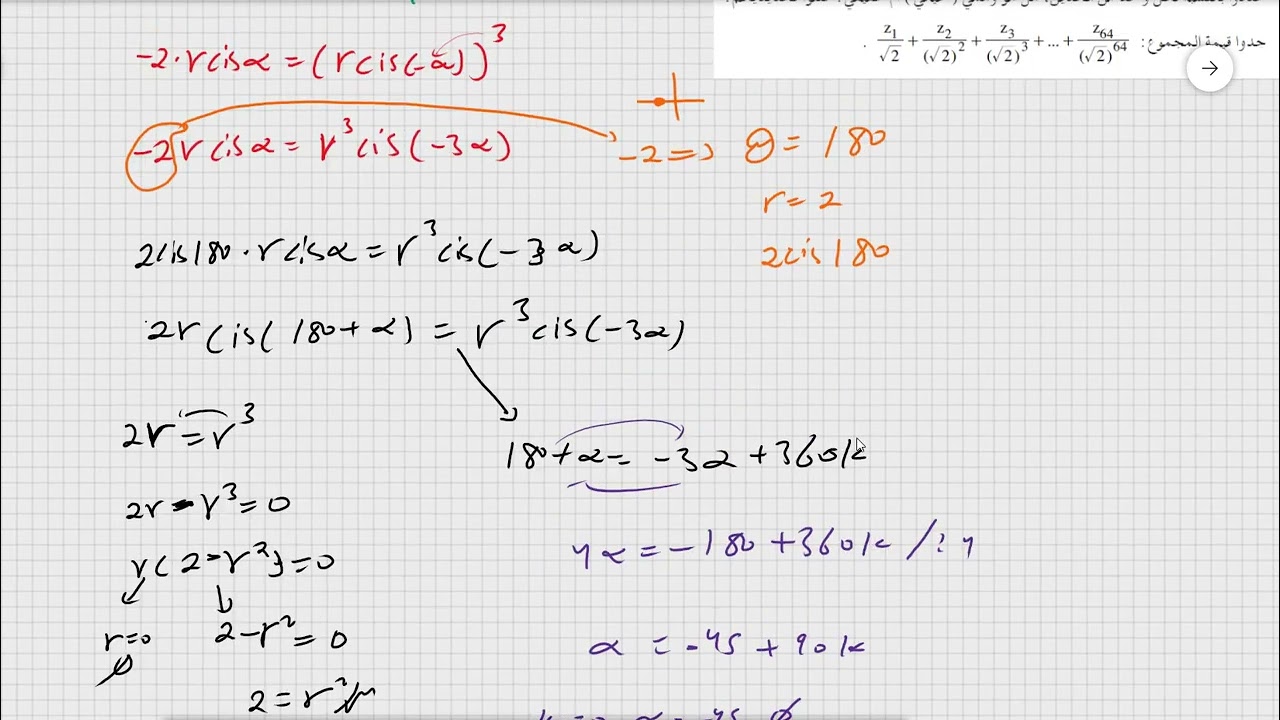 حدوا قيمة المجموع: z₁/√2 + z₂/(√2)² + z₃/(√2)³ + ... + z₆₄/(√2)⁶⁴ .
-2·rcisα = (rcis(-α))³
-2rcisα = r³cis(-3α)
-2 => θ = 180
r = 2
2cis180
2cis180·rcisα = r³cis(-3α)
2rcis(180+α) = r³cis(-3α)
2r = r³
2r - r³ = 0
r(2-r²) = 0
r=0
∅
2-r² = 0
2 = r²
180+α = -3α+360k
4α = -180+360k /:4
α = -45+90k